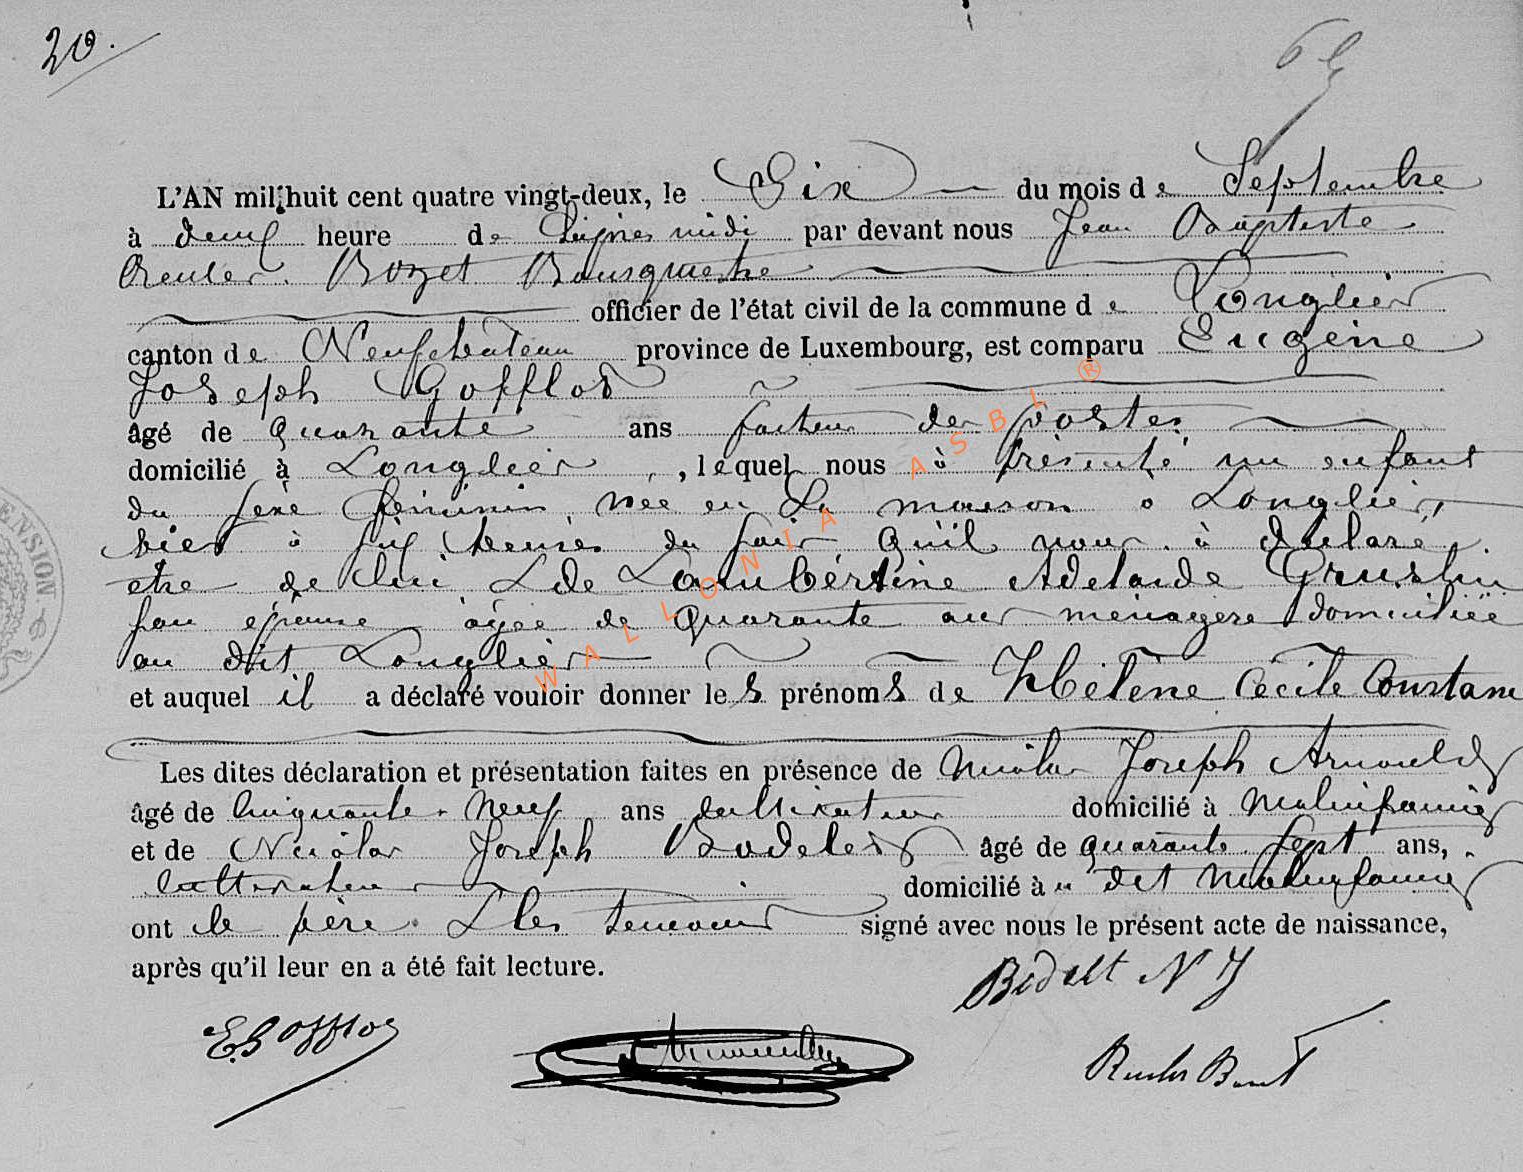 20.
L'AN mil huit cent quatre vingt-deux, le Six du mois de Septembre
à deux heure de l'après midi par devant nous Jean Baptiste
Reuler. Bozet Bourgmestre
officier de l'état civil de la commune de Longlier
canton de Neufchateau province de Luxembourg, est comparu Eugène
Joseph Gofflot
âgé de quarante ans facteur des postes
domicilié à Longlier, lequel nous à présenté un enfant
du sexe féminin, née en sa maison à Longlier,
hier à six heures du soir, qu'il nous à déclaré
etre de lui & de Lambertine Adelaide
son épouse agée de quarante ans menagère domiciliée
au dit Longlier
et auquel il a déclaré vouloir donner les prénoms de Hélène Cécile Constance
Les dites déclaration et présentation faites en présence de Nicolas Joseph Arnould
âgé de cinquante-neuf ans cultivateur domicilié à Molinfaing
et de Nicolas Joseph âgé de quarante sept ans,
cultivateur domicilié à dit Molinfaing
ont le père & les temoins signé avec nous le présent acte de naissance,
après qu'il leur en a été fait lecture.
N J
E. Gofflot
WALLONIA ASBL ®
ENSION.